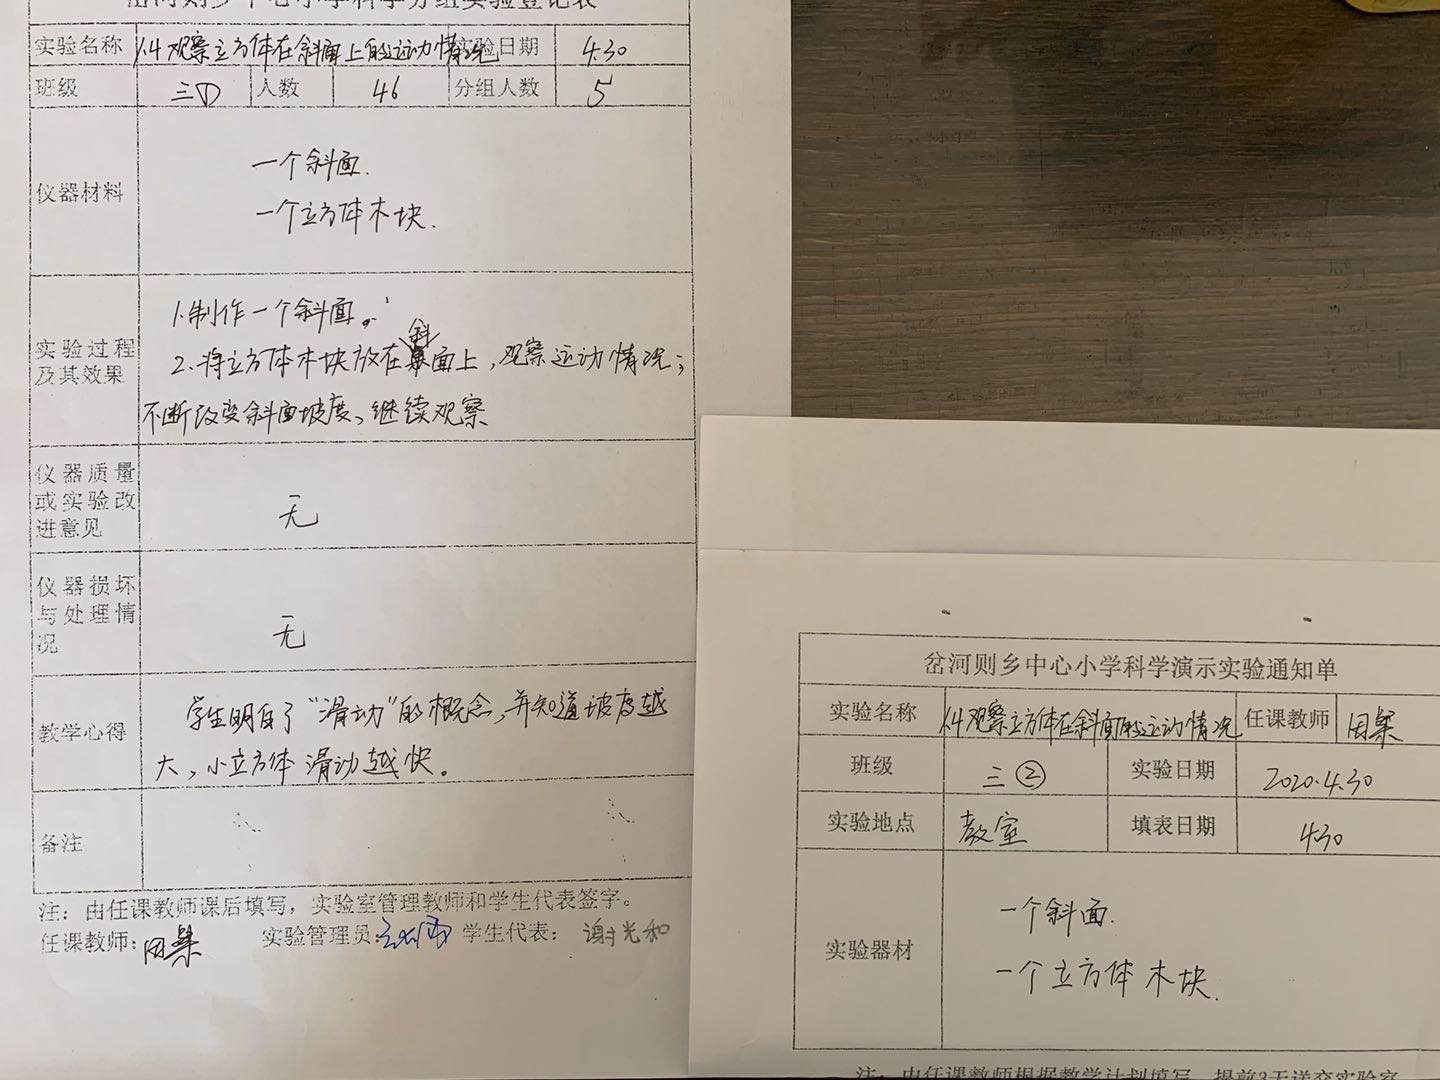 岔河则乡中心小学科学分组实验登记表
实验名称 1.4观察立方体在斜面上的运动情况 实验日期 4.30
班级 三① 人数 46 分组人数 5
仪器材料
一个斜面.
一个立方体木块.
实验过程
及其效果
1.制作一个斜面。
2.将立方体木块放在斜面上,观察运动情况;
不断改变斜面坡度、继续观察
仪器质量
或实验改
进意见
无
仪器损坏
与处理情
况
无
教学心得
学生明白了“滑动”的概念,并知道坡度越
大,小立方体滑动越快。
备注
注:由任课教师课后填写,实验室管理教师和学生代表签字。
任课教师: 实验管理员: 学生代表: 谢光和
岔河则乡中心小学科学演示实验通知单
实验名称 1.4观察立方体在斜面的运动情况 任课教师
班级 三② 实验日期 2020.4.30
实验地点 教室 填表日期 4.30
实验器材
一个斜面.
一个立方体木块.
注:由任课教师根据教学计划填写,提前3天送交实验室